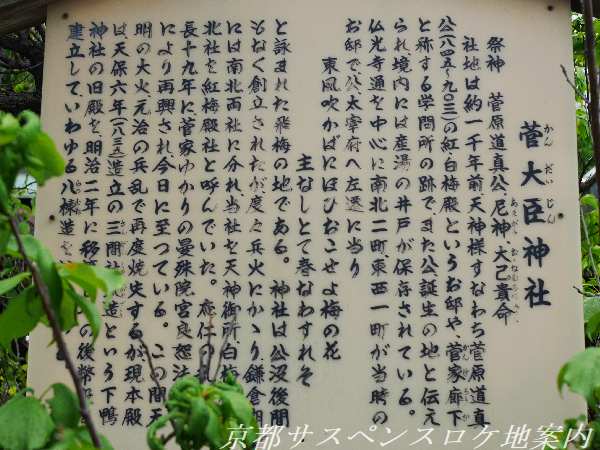 菅大臣神社
かんだいじん
祭神 菅原道真公、尼神、大己貴命
社地は約一千年前天神様すなわち菅原道真
公(八四五〜九〇三)の紅白梅殿というお邸や、菅家廊下
と称する学問所の跡でまた公誕生の地と伝え
られ、境内には産湯の井戸が保存されている。
仏光寺通を中心に南北二町、東西一町が当時の
お邸で公太宰府へ左遷に当り
東風吹かばにほひおこせよ梅の花
主なしとて春なわすれそ
と詠まれた飛梅の地である。神社は公没後間
もなく創立されたが度々兵火にかゝり、鎌倉期
には南北両社に分れ当社を天神御所、白梅
北社を紅梅殿社と呼んでいた。応仁
長十九年に菅家ゆかりの曼殊院宮良恕法
により再興され今日に至つている。この間天
明の大火元治の兵乱で再度焼失するが現本殿
は天保六年(一八三五)造立の三間社 造という下鴨
神社の旧殿を明治二年に移 の後幣
建立していわゆる八棟造
京都サスペンスロケ地案内